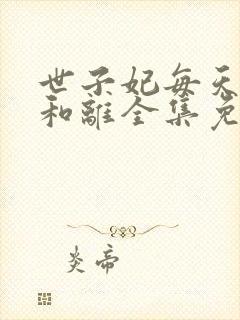 世子妃每天
和離全集免
炎帝